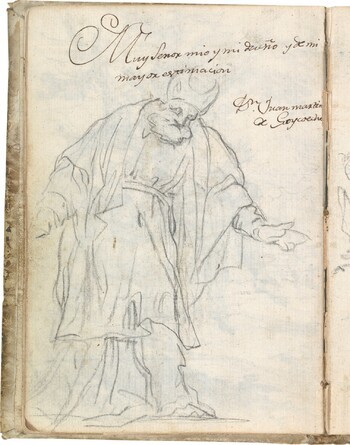 Muy Señor mio y mi dueño y de mi
mayor estimacion
Dn Juan martin
de Goycoechea